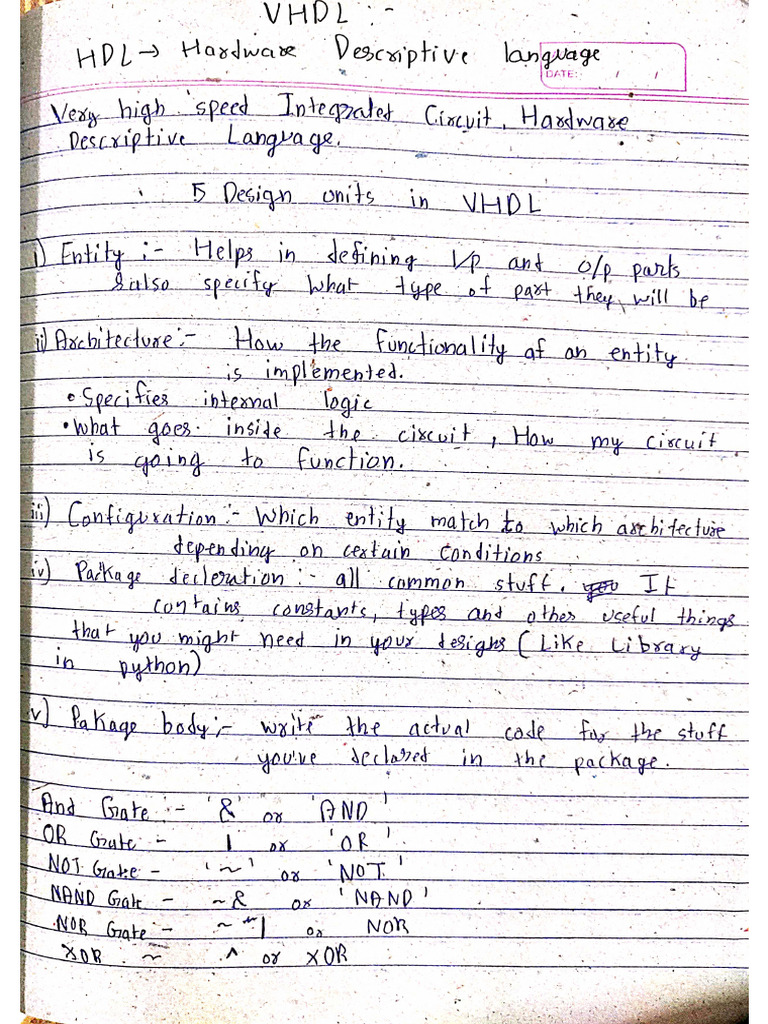 VHDL :-
HDL → Hardware Descriptive language
DATE: / /
Very high speed Integrated Circuit, Hardware
Descriptive Language.
5 Design units in VHDL
i) Entity :- Helps in defining I/p and o/p parts
& also specify what type of part they will be
ii) Architecture :- How the functionality of an entity
is implemented.
• Specifies internal logic
• What goes inside the circuit, How my circuit
is going to function.
iii) Configuration :- Which entity match to which architecture
depending on certain conditions
iv) Package decleration :- all common stuff. It
contains constants, types and other useful things
that you might need in your designs (Like Library
in python)
v) Pakage body :- write the actual code for the stuff
you've declared in the package.
And Gate :- '&' or 'AND'
OR Gate :- | or 'OR'
NOT Gate - '~' or 'NOT'
NAND Gate - ~& or 'NAND'
NOR Gate - ~| or NOR
XOR ~ ^ or XOR